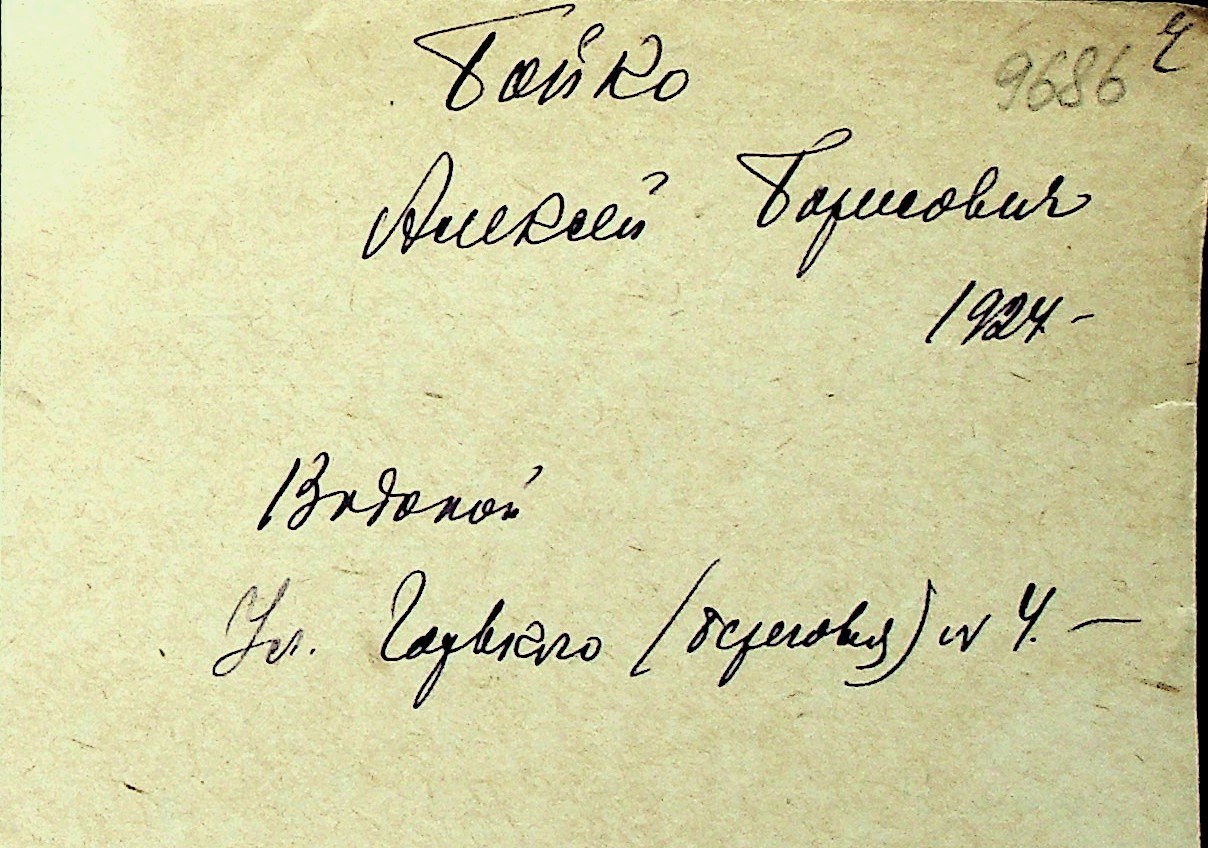 Бойко 9686
Алексей Борисович
1924 -
Ул. Горького (береговая) № 4. —